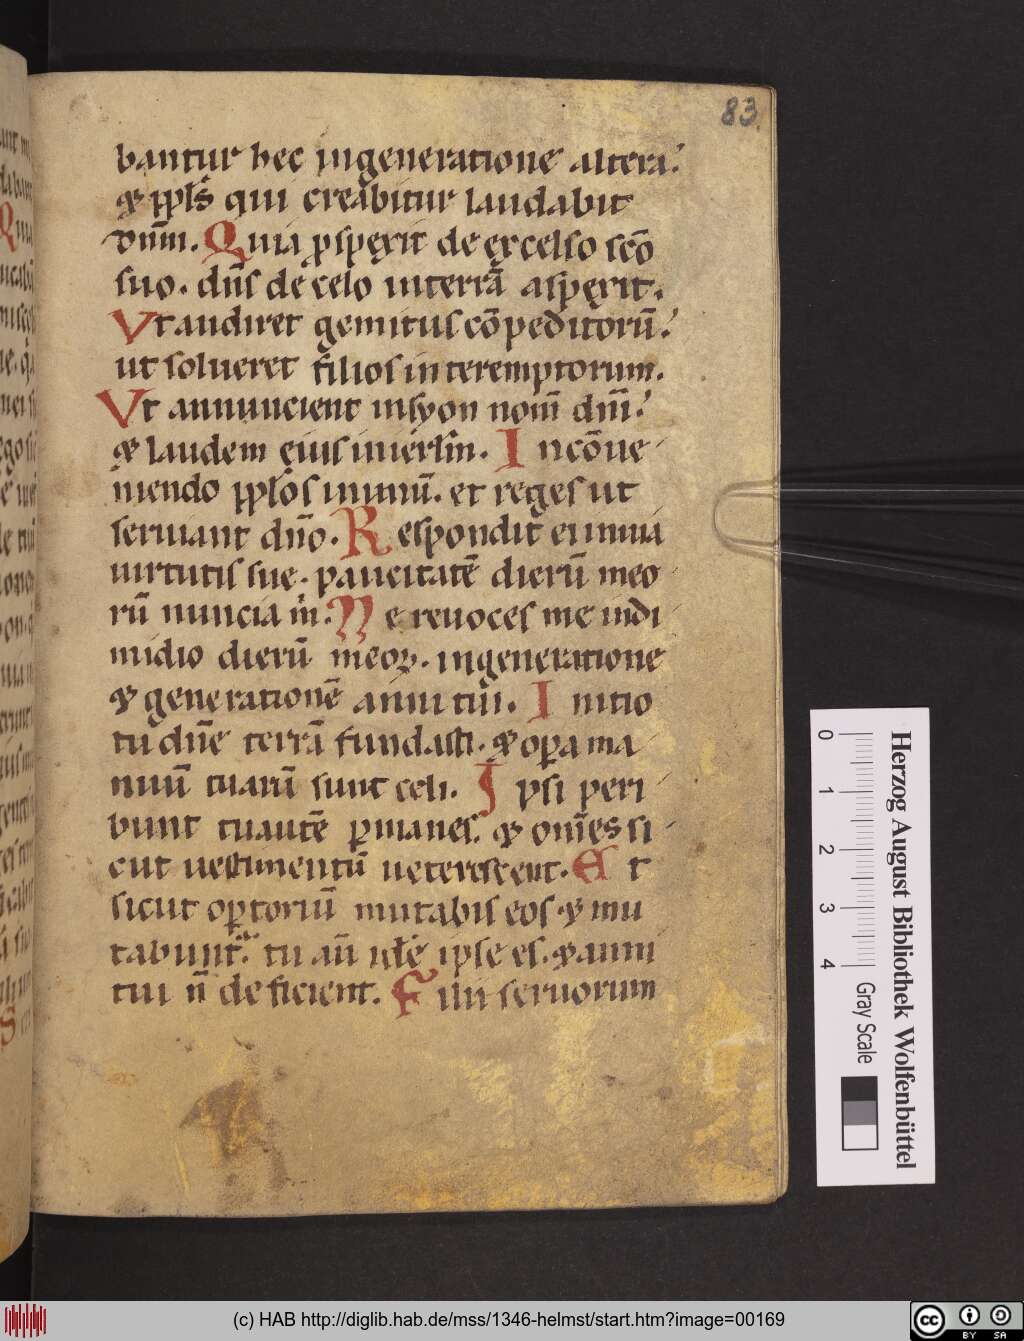 83
bantur hec ingeneratione altera.
⁊ ppłs qui creabitur laudabit
dn̄m. Quia ꝓspexit de excelso sc̄o
suo. dn̄s de celo interrā aspexit.
Vt audiret gemitus cōpeditorū.
ut solueret filios interemptorum.
Vt annuncient insyon nom̄ dn̄i.
⁊ laudem eius inierłm. Inconue
niendo ppłos inunū. et reges ut
seruiant dn̄o. Respondit ei inuia
uirtutis sue. paucitatē dierū meo
rū nuncia m̄. Ne reuoces me indi
midio dierū meoꝝ. ingeneratione
⁊ generationē anni tui. Initio
tu dn̄e terrā fundasti. ⁊ oꝑa ma
nuū tuarū sunt celi. Ipsi peri
bunt tu autē ꝑmanes. ⁊ om̄es si
cut uestimentū ueterescent. Et
sicut oꝑtoriū mutabis eos. ⁊ mu
tabunt᷑. tu aū idē ipse es. ⁊ anni
tui n̄ deficient. Filii seruorum
0 1 2 3 4
Gray Scale
Herzog August Bibliothek Wolfenbüttel
(c) HAB http://diglib.hab.de/mss/1346-helmst/start.htm?image=00169
cc BY SA